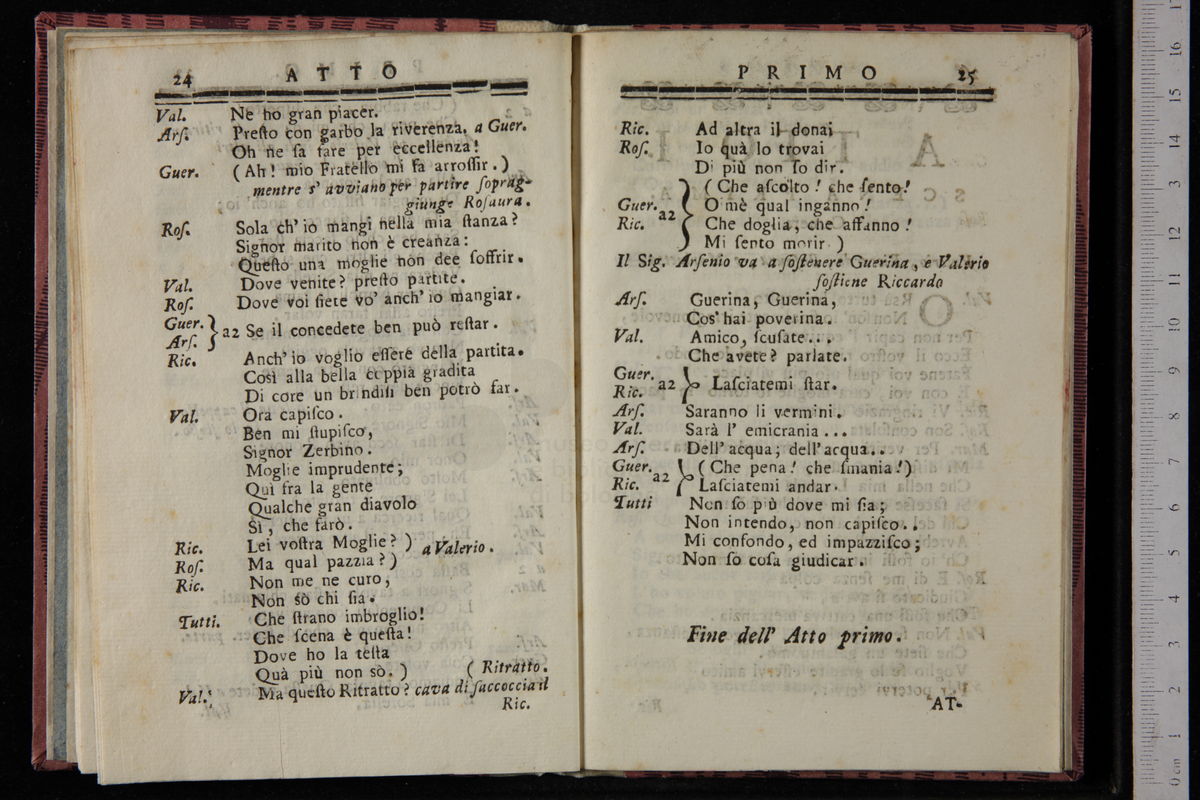 24 ATTO
Val. Ne ho gran piacer.
Arſ. Preſto con garbo la riverenza. a Guer.
Oh ne ſa fare per eccellenza!
Guer. (Ah! mio Fratello mi fa arroſſir.)
mentre s' avviano per partire ſoprag-
giunge Roſaura.
Roſ. Sola ch' io mangi nella mia ſtanza?
Signor marito non è creanza:
Queſto una moglie non dee ſoffrir.
Val. Dove venite? preſto partite.
Roſ. Dove voi ſiete vo' anch' io mangiar.
Guer. } a2 Se il concedete ben può reſtar.
Arſ.
Ric. Anch' io voglio eſſere della partita.
Così alla bella coppia gradita
Di core un brindiſi ben potrò far.
Val. Ora capiſco.
Ben mi ſtupiſco,
Signor Zerbino.
Moglie imprudente;
Quì fra la gente
Qualche gran diavolo
Sì, che farò.
Ric. Lei voſtra Moglie? ) a Valerio.
Roſ. Ma qual pazzia? )
Ric. Non me ne curo,
Non sò chi ſia.
Tutti. Che ſtrano imbroglio!
Che ſcena è queſta!
Dove ho la teſta
Quà più non sò. ) ( Ritratto.
Val. Ma queſto Ritratto? cava di ſaccoccia il
Ric.
PRIMO 25
Ric. Ad altra il donai
Roſ. Io quà lo trovai
Di più non ſo dir.
( Che aſcolto! che ſento!
Guer. } a2 O mè qual inganno!
Ric. Che doglia, che affanno!
Mi ſento morir. )
Il Sig. Arſenio va a ſoſtenere Guerina, e Valerio
ſoſtiene Riccardo
Arſ. Guerina, Guerina,
Cos' hai poverina.
Val. Amico, ſcuſate...
Che avete? parlate.
Guer. } a2 Laſciatemi ſtar.
Ric.
Arſ. Saranno li vermini.
Val. Sarà l' emicrania...
Arſ. Dell' acqua; dell' acqua..
Guer. } a2 ( Che pena! che ſmania!)
Ric. Laſciatemi andar.
Tutti Non ſo più dove mi ſia;
Non intendo, non capiſco..
Mi confondo, ed impazziſco;
Non ſo coſa giudicar.
Fine dell' Atto primo.
AT-